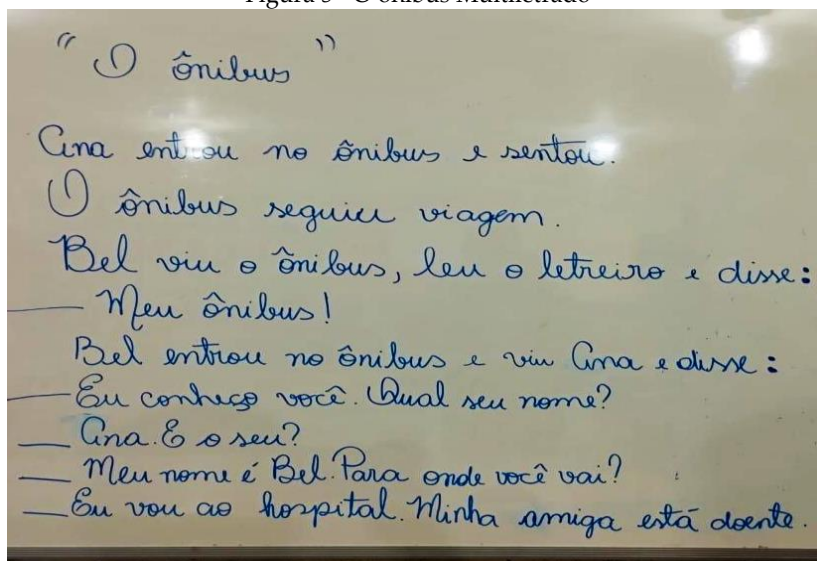 Figura 3 - O ônibus Multiletrado
"O ônibus"
Ana entrou no ônibus e sentou.
O ônibus seguiu viagem.
Bel viu o ônibus, leu o letreiro e disse:
— Meu ônibus!
Bel entrou no ônibus e viu Ana e disse:
— Eu conheço você. Qual seu nome?
— Ana. E o seu?
— Meu nome é Bel. Para onde você vai?
— Eu vou ao hospital. Minha amiga está doente.